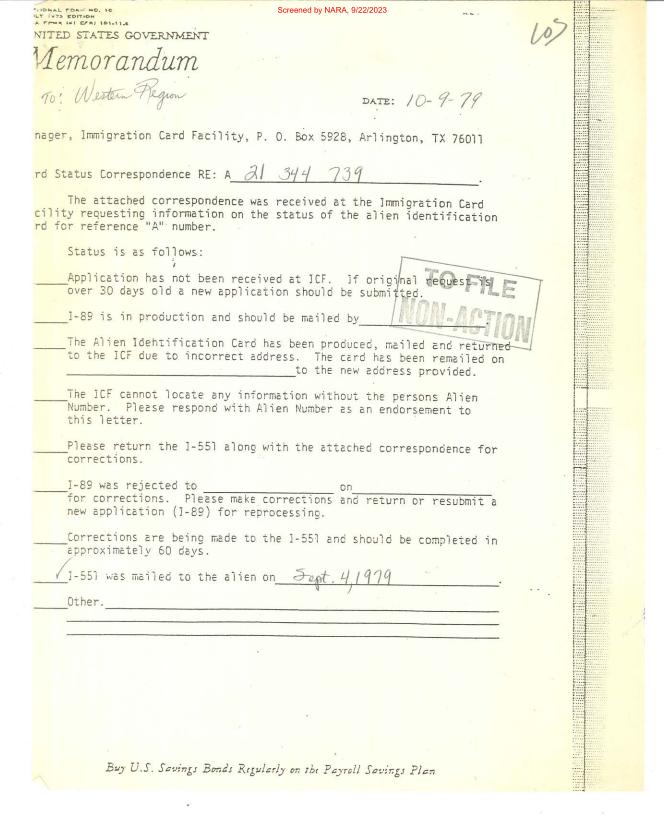 Screened by NARA, 9/22/2023
LOS
NITED STATES GOVERNMENT
Memorandum
TO: Western Region
DATE: 10-9-79
nager, Immigration Card Facility, P. O. Box 5928, Arlington, TX 76011
rd Status Correspondence RE: A 21 344 739.
The attached correspondence was received at the Immigration Card
cility requesting information on the status of the alien identification
rd for reference "A" number.
Status is as follows:
Application has not been received at ICF. If original request is
over 30 days old a new application should be submitted.
TO FILE
NON-ACTION
I-89 is in production and should be mailed by
The Alien Identification Card has been produced, mailed and returned
to the ICF due to incorrect address. The card has been remailed on
to the new address provided.
The ICF cannot locate any information without the persons Alien
Number. Please respond with Alien Number as an endorsement to
this letter.
Please return the I-551 along with the attached correspondence for
corrections.
I-89 was rejected to on
for corrections. Please make corrections and return or resubmit a
new application (I-89) for reprocessing.
Corrections are being made to the I-551 and should be completed in
approximately 60 days.
✓ I-551 was mailed to the alien on Sept. 4, 1979.
Other.
Buy U.S. Savings Bonds Regularly on the Payroll Savings Plan